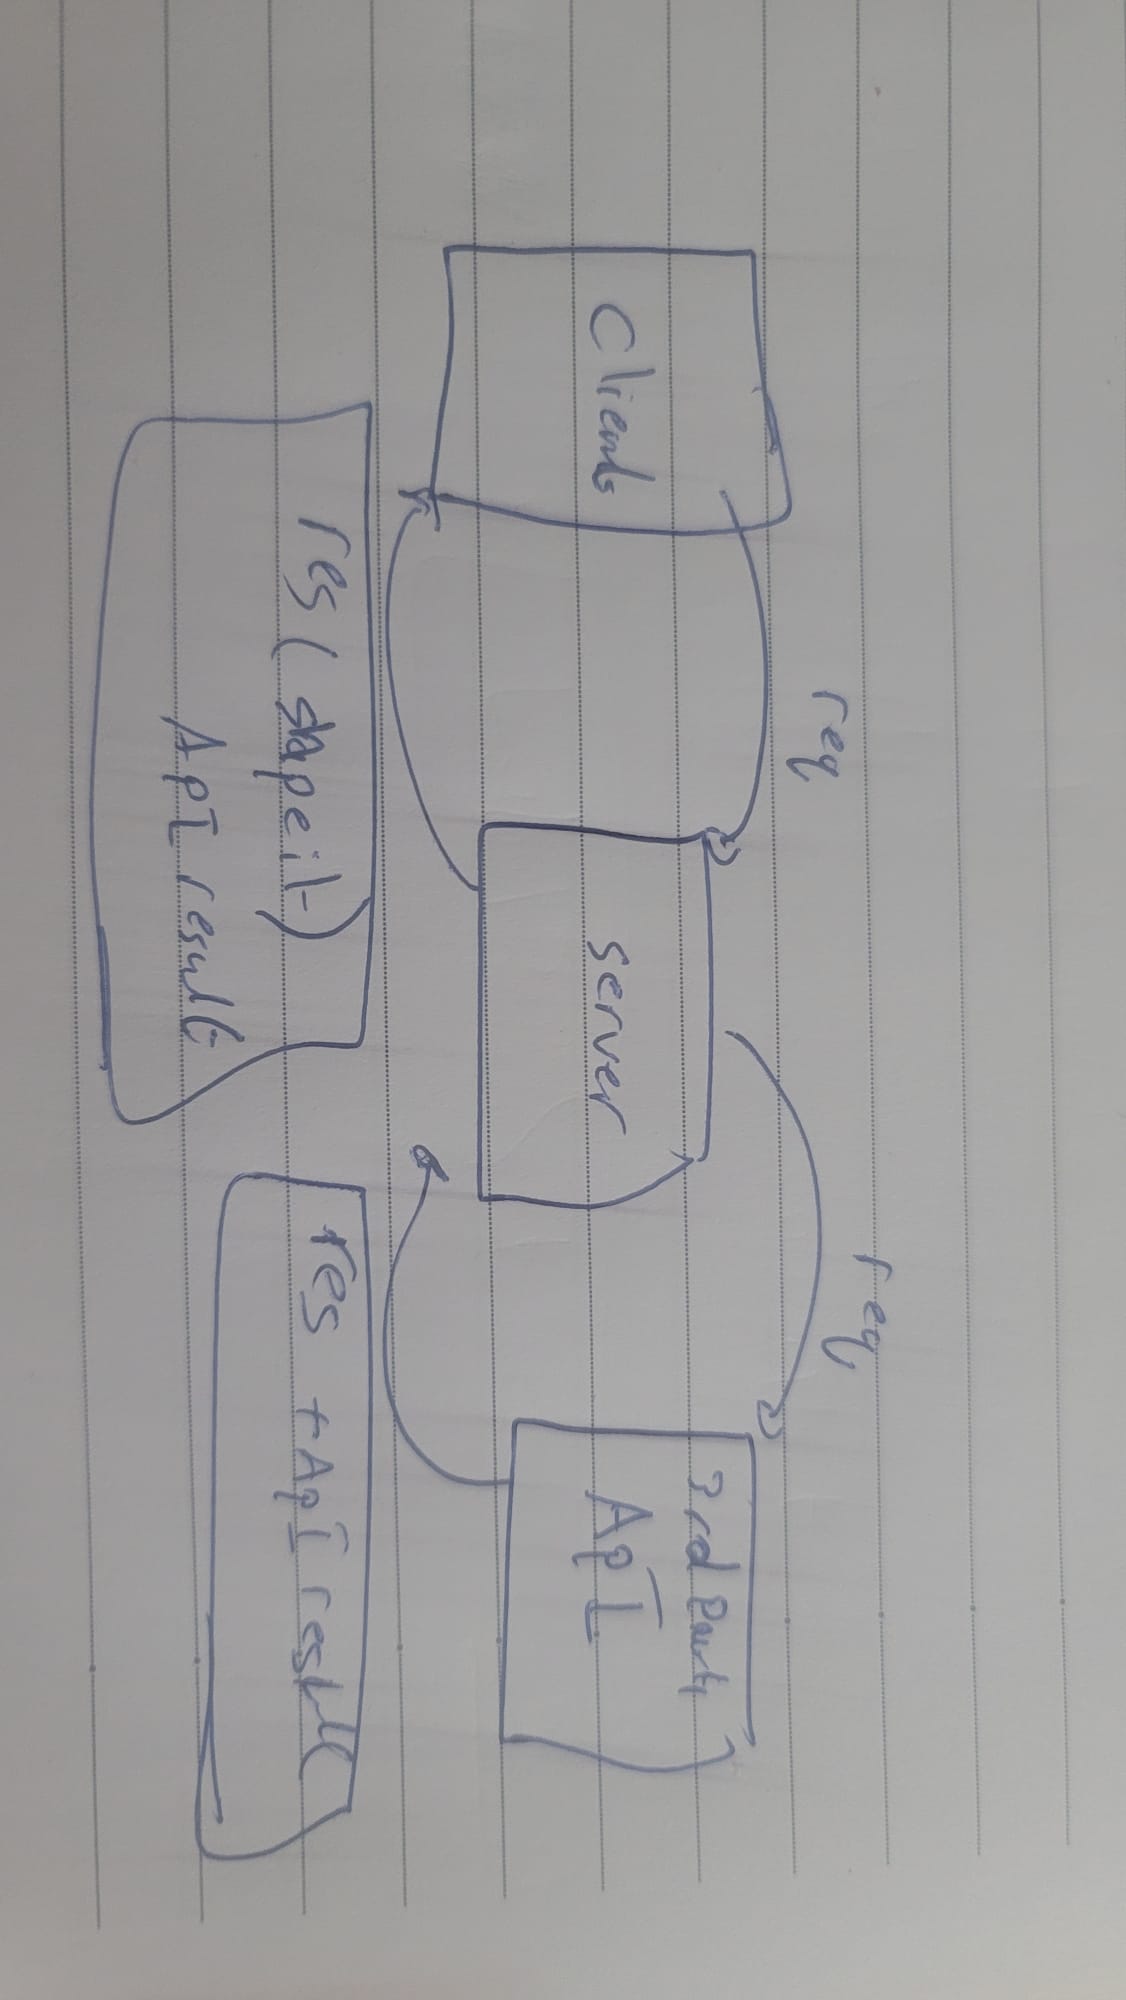 req
req
Clients
server
3rd Party
ApI
res (shape it)
ApI result
res + ApI result